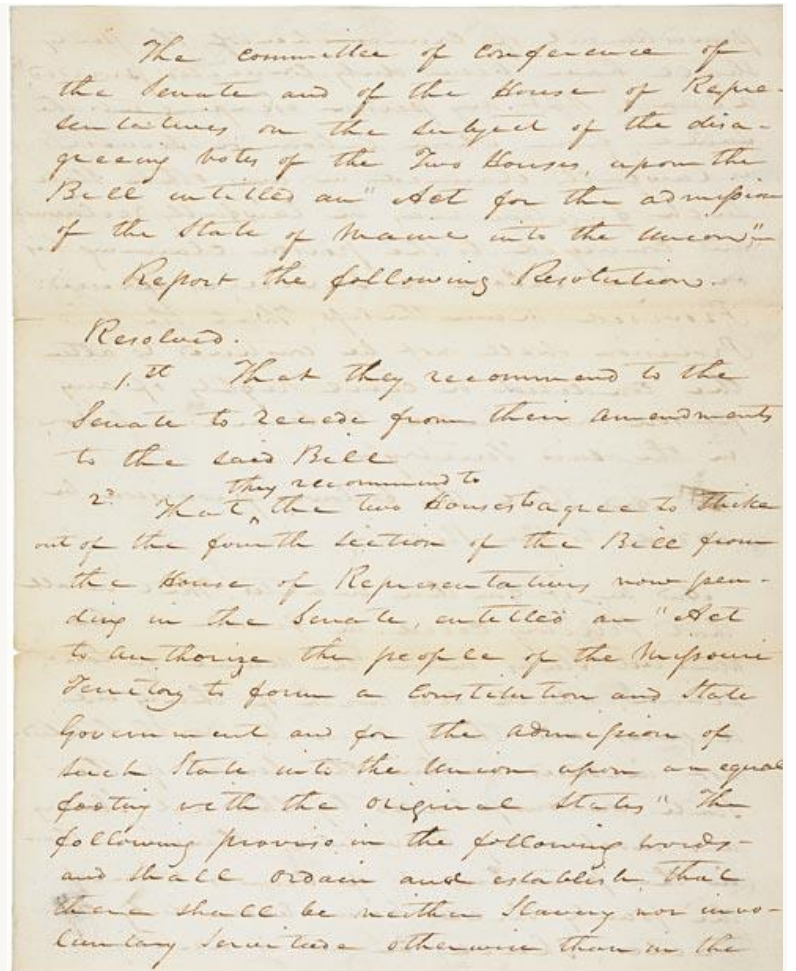 The committee of conference of
the Senate and of the House of Repre-
sentatives on the subject of the disa-
greeing votes of the Two Houses, upon the
Bill entitled an "Act for the admission
of the State of Maine into the Union"
Report the following Resolution.
Resolved.
1.st That they recommend to the
Senate to recede from their amendments
to the said Bill
they recommend to
2d That the two Houses to agree to Strike
out of the fourth section of the Bill from
the House of Representatives now pen-
ding in the Senate, entitled an "Act
to authorize the people of the Missouri
Territory to form a Constitution and State
Government and for the admission of
such State into the Union upon an equal
footing with the original States" The
following proviso in the following words-
and shall ordain and establish that
there shall be neither Slavery nor invo-
luntary Servitude otherwise than in the